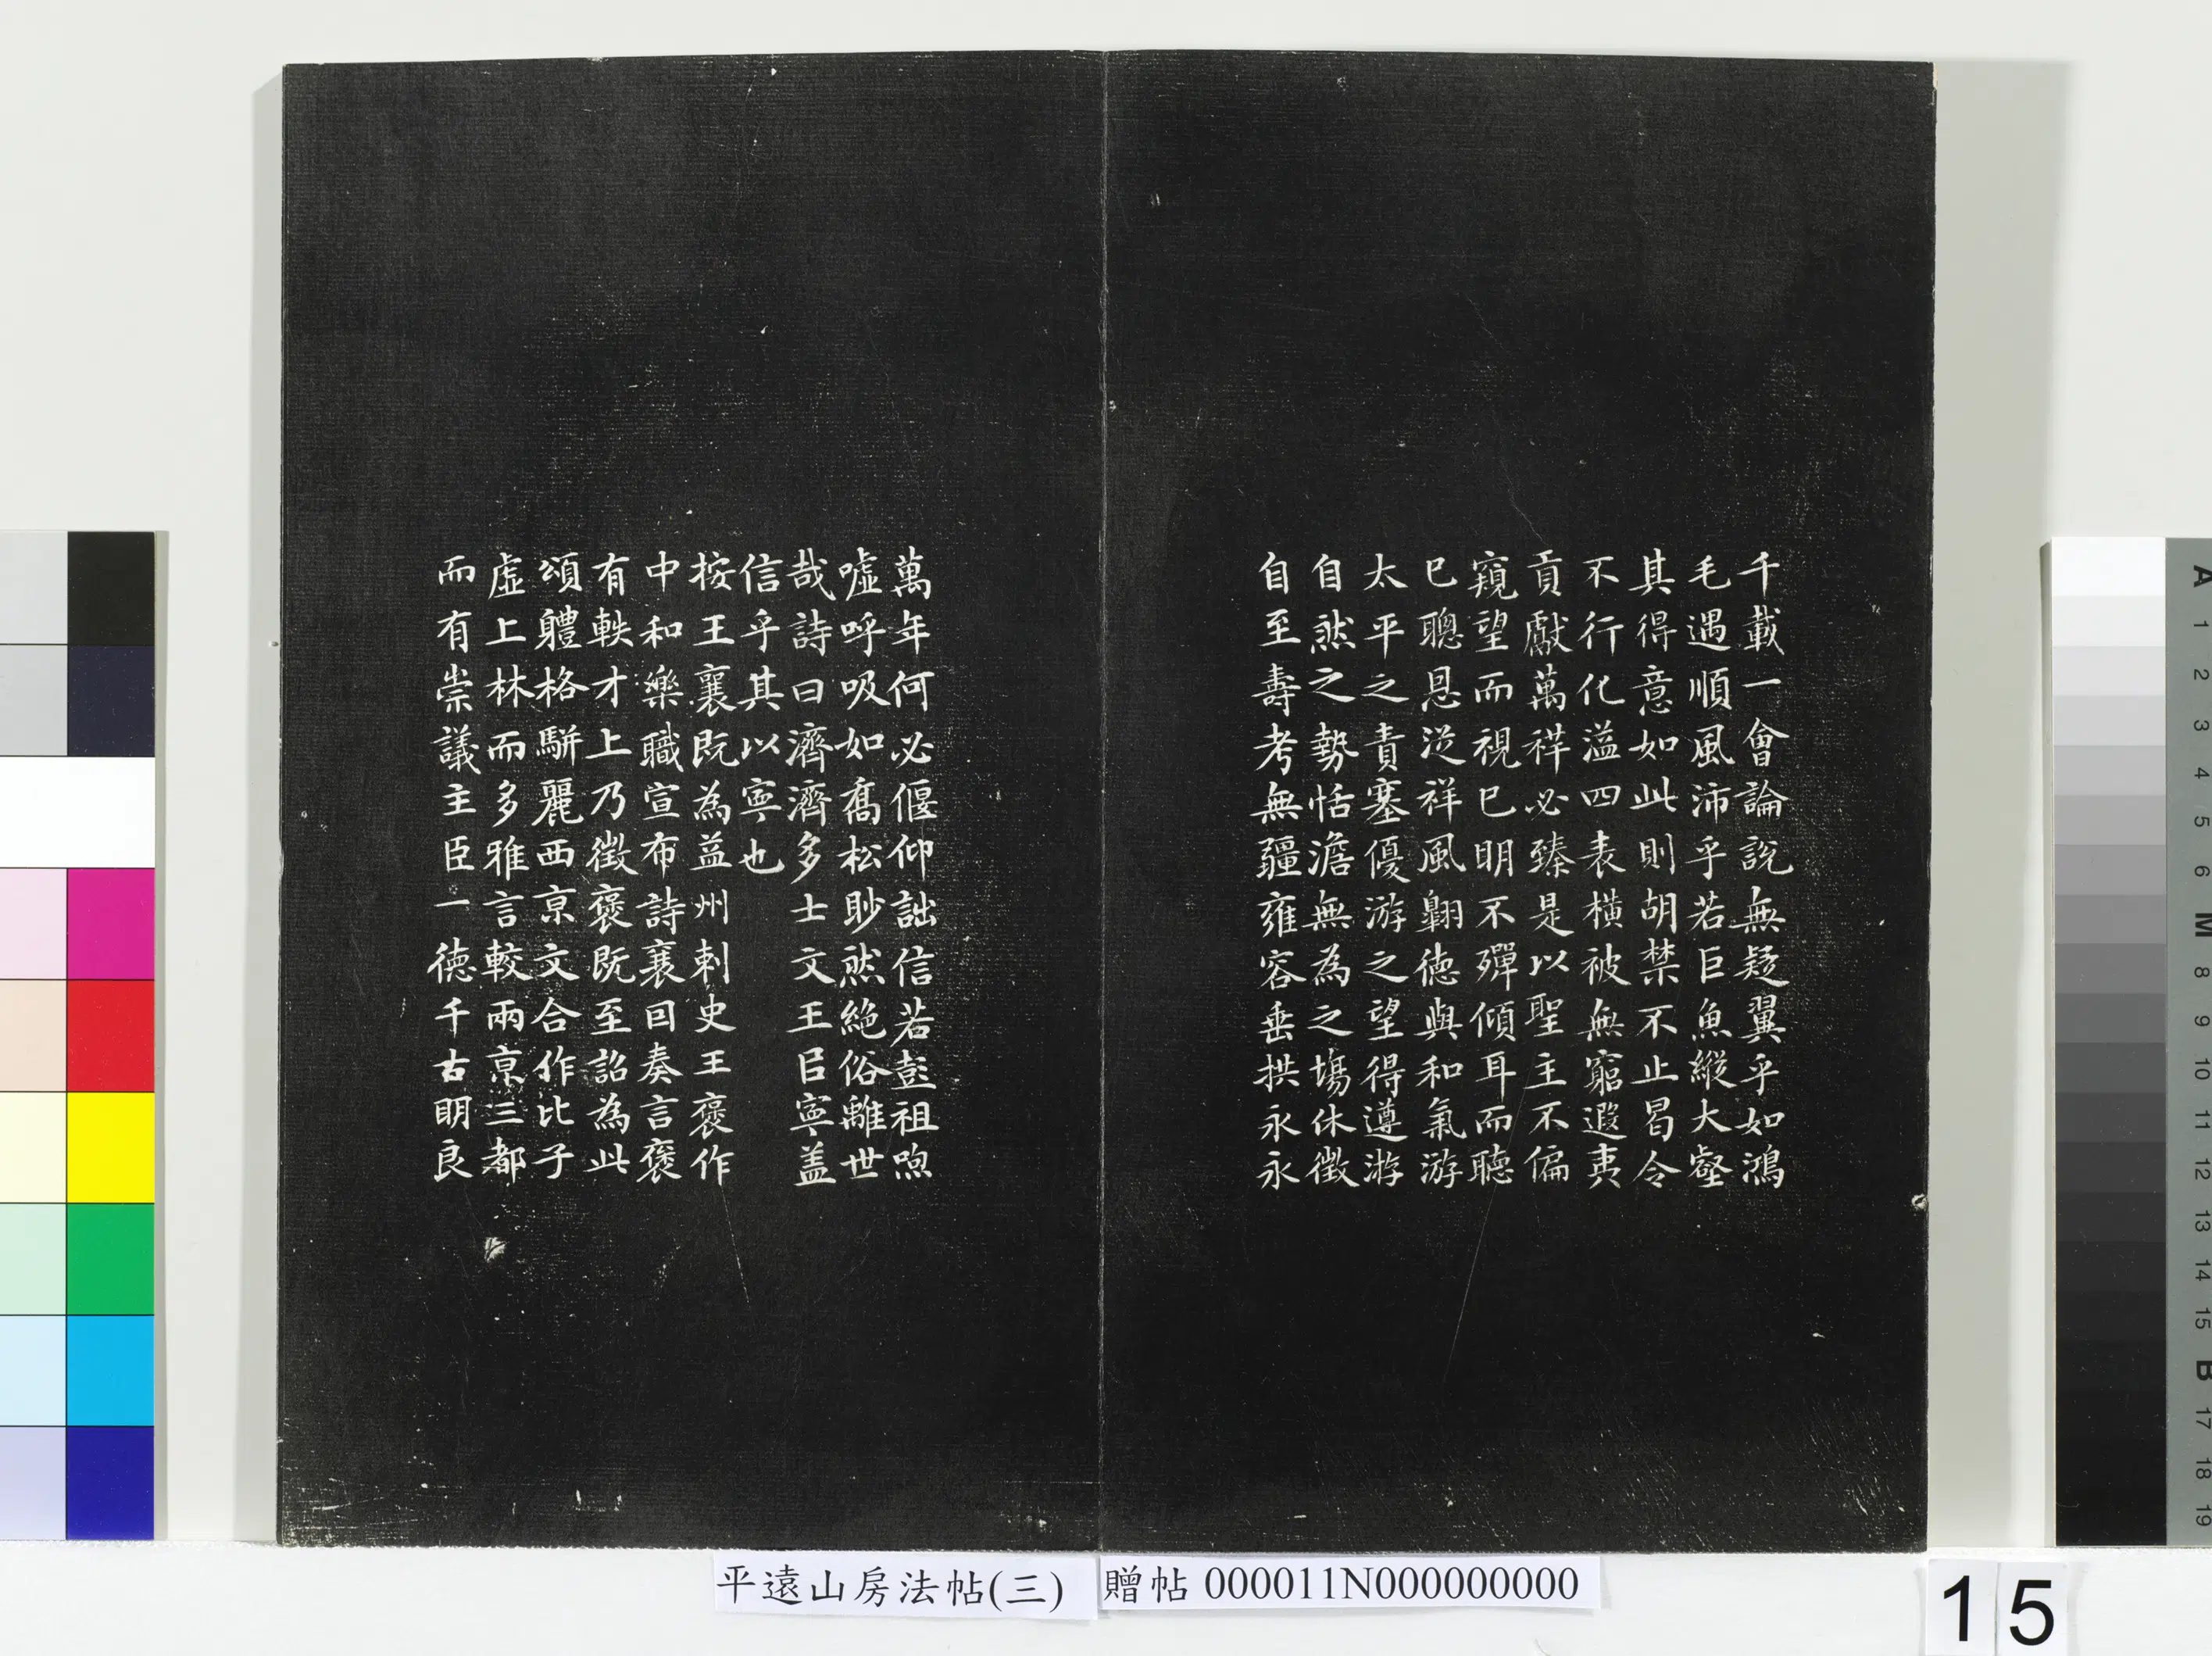 千載一會論說無疑翼乎如鴻
毛遇順風沛乎若巨魚縱大壑
其得意如此則胡禁不止曷令
不行化溢四表橫被無窮遐夷
貢獻萬祥必臻是以聖主不偏
窺望而視已明不殫傾耳而聽
已聰恩從祥風翺德與和氣游
太平之責塞優游之望得遵游
自然之勢恬澹無為之場休徵
自至壽考無疆雍容垂拱永永
萬年何必偃仰詘信若彭祖呴
噓呼吸如喬松眇然絕俗離世
哉詩曰濟濟多士文王㠯寧蓋
信乎其以寧也
按王襄既為益州刺史王褒作
中和樂職宣布詩襄因奏言褒
有軼才上乃徵褒既至詔為此
頌體格駢麗西京文合作比子
虛上林而多雅言較兩京三都
而有崇議主臣一德千古明良
平遠山房法帖(三)
贈帖 000011N000000000
15
A
1
2
3
4
5
6
M
8
9
10
11
12
13
14
15
B
17
18
19